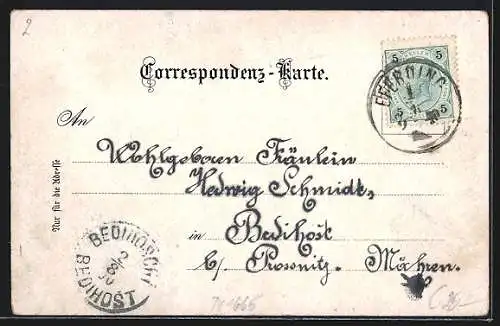 2
Correspondenz-Karte.
5 5
EFERDING
5
An
Wohlgeboren Fräulein
Hedwig Schmidt,
in Bedihošt
b/ Prossnitz. Mähren.
Nur für die Adresse
BEDIHOŠT
2